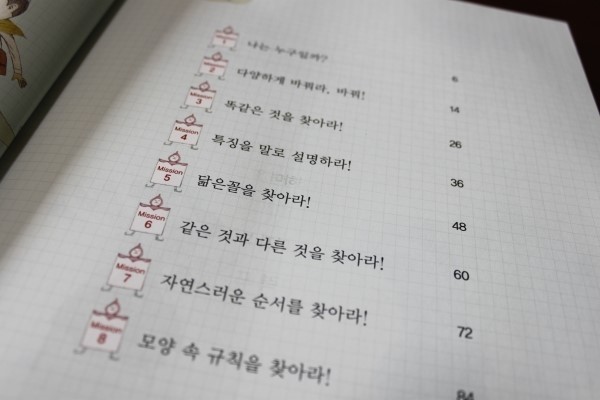 Mission 1 나는 누구일까? 6
Mission 2 다양하게 바꿔라, 바꿔! 14
Mission 3 똑같은 것을 찾아라! 26
Mission 4 특징을 말로 설명하라! 36
Mission 5 닮은꼴을 찾아라! 48
Mission 6 같은 것과 다른 것을 찾아라! 60
Mission 7 자연스러운 순서를 찾아라! 72
Mission 8 모양 속 규칙을 찾아라! 84